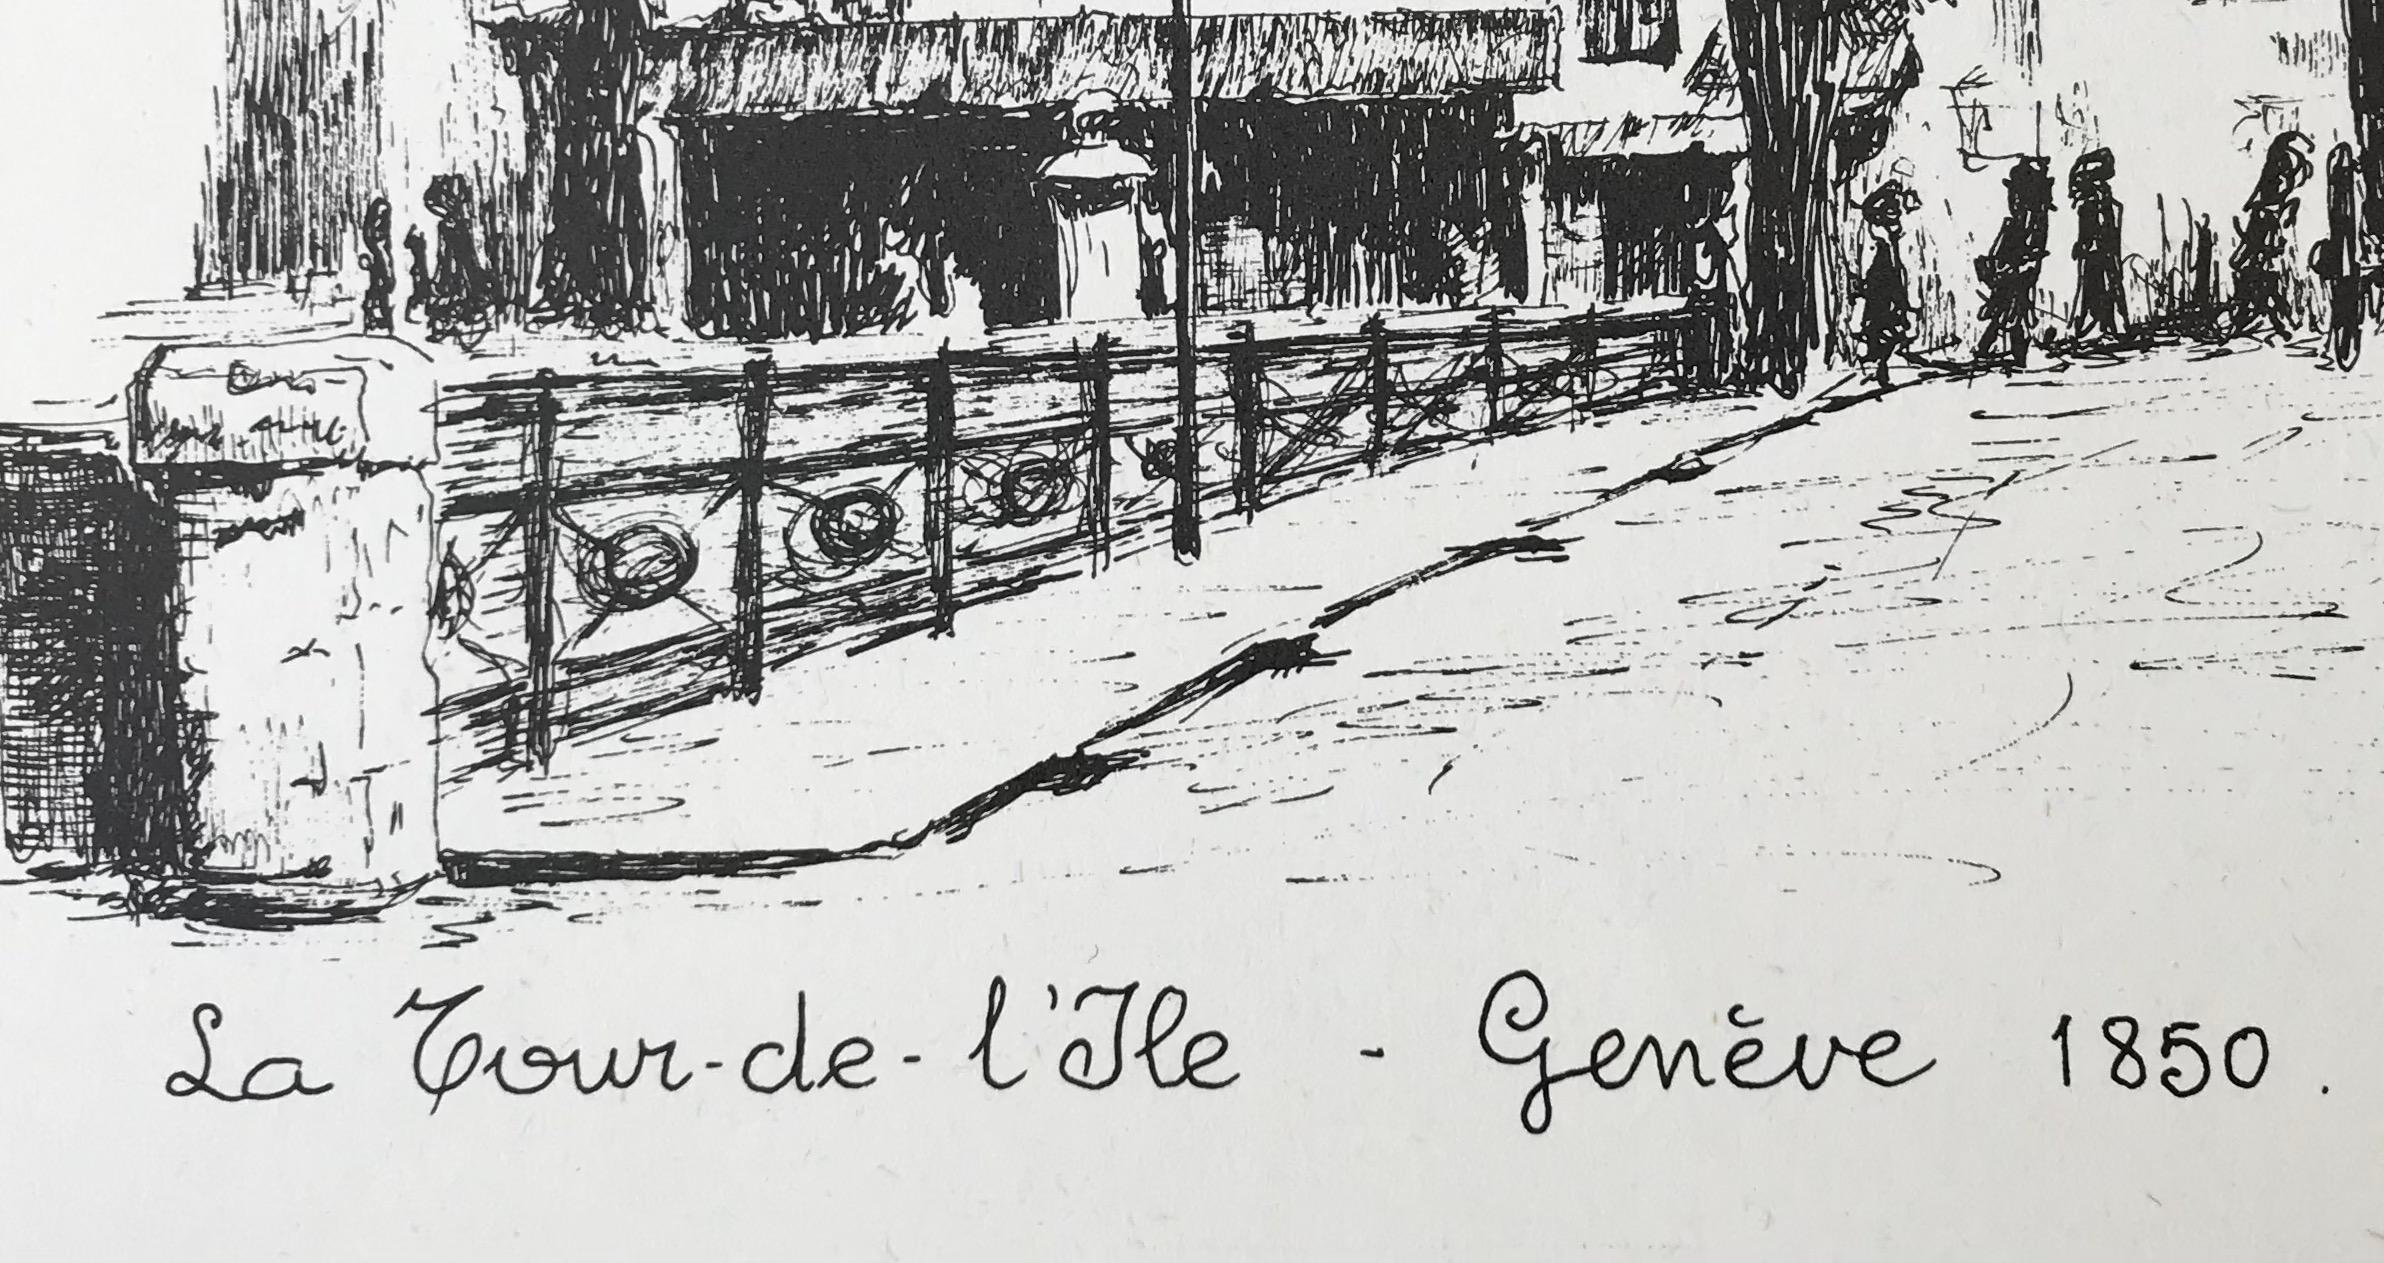 La Tour-de-l'Ile - Genève 1850.